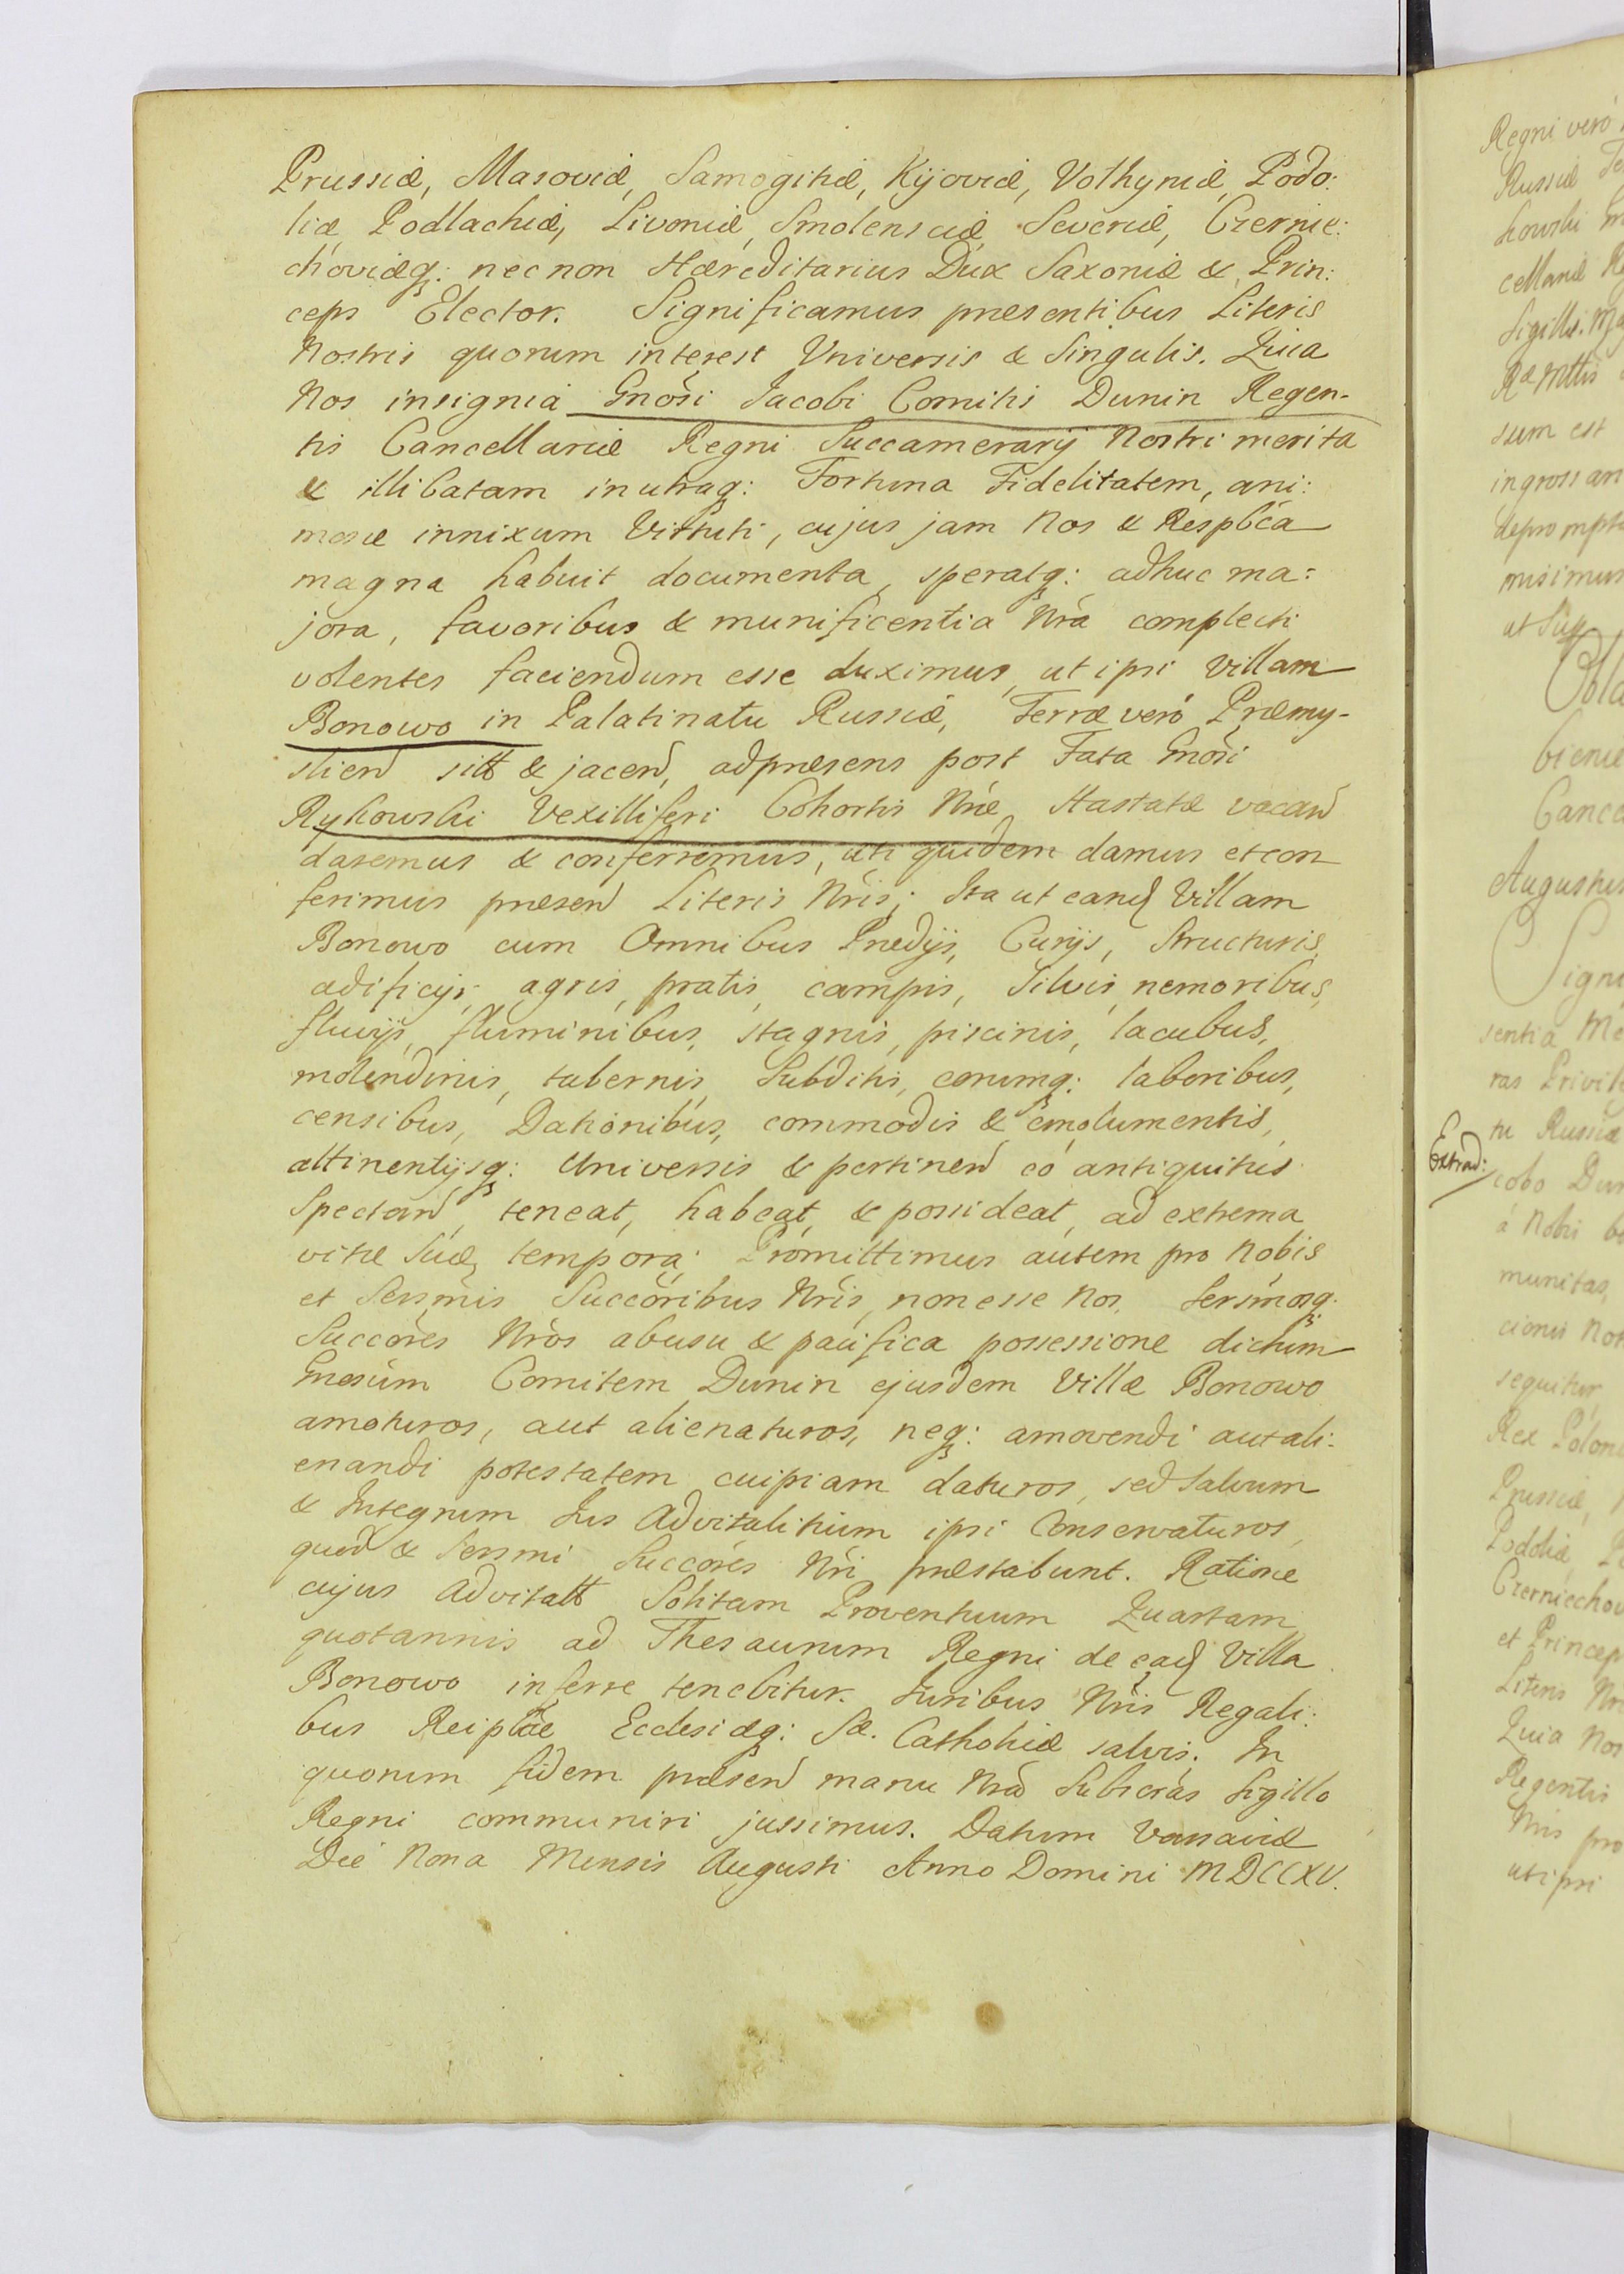 Prussiæ, Masoviæ, Samogitiæ, Kijoviæ, Volhyniæ, Podo:
liæ Podlachiæ, Livoniæ, Smolensciæ Severiæ, Czernie:
choviæq: necnon Hæreditarius Dux Saxoniæ & Prin:
ceps Elector. Significamus præsentibus Literis
Nostris quorum interest Universis & Singulis. Quia
Nos insignia Gnosi Jacobi Comitis Dunin Regen-
tis Cancellariæ Regni Succamerarij Nostri merita
& illibatam in utraq: Fortuna Fidelitatem, ani:
mosæ innixam Virtuti, cujus jam Nos & Respblca
magna habuit documenta, speratq: adhuc ma:
jora, favoribus & munificentia Nrã complecti
volentes faciendum esse duximus, ut ipsi Villam
Bonowo in Palatinatu Russiæ, Terræ verò Præmy-
slien sitt & jacen, ad præsens post Fata Gnosi
Rykowski Vexilliferi Cohortis Nræ Hastatæ vacan
daremus & conferremus, uti quidem damus et con
ferimus præsen Literis Nris; Ita ut eand Villam
Bonowo cum Omnibus Prædijs, Curijs, Structuris,
ædificijs, agris, pratis, campis, Silvis nemoribus,
fluvijs, fluminibus, stagnis, piscinis, lacubus,
molendinis, tabernis, Subditis, eorumq: laboribus,
censibus, Dationibus, commodis & emolumentis,
attinentijsq: Universis & pertinen eó antiquitus
Spectan, teneat, habeat, & possideat, ad extrema
vitæ Suæ, tempora; Promittimus autem pro Nobis
et Sersmis Succoribus Nris, non esse Nos, Sersmosq.
Succores Nros ab usu & pacifica possessione dictum
Gnosum Comitem Dunin ejusdem Villæ Bonowo
amoturos, aut alienaturos, neq: amovendi aut ali-
enandi potestatem cuipiam daturos, sed Salvum
& Integrum Jus Advitalitium ipsi Conservaturos,
quod & Sersmi Succores Nri præstabunt. Ratione
cujus Advitalt Solitam Proventuum Quartam
quotannis ad Thesaurum Regni de ead Villa
Bonowo inferre tenebitur. Juribus Nris Regali:
bus Reiplcæ Ecclesiæq: Sæ. Catholicæ salvis. In
quorum fidem præsen manu Nrã Subscras Sigillo
Regni communiri jussimus. Datum Varsaviæ
Die Nona Mensis Augusti Anno Domini MDCCXV.
Regni verò
Russiæ
kowski
cellariæ
Sigillo.
Ræ Mttis
sum est
ingrossan
deprompt
misimus
ut Sup
bienie
Cance
Augustus
Signi
sentia
ras Privil
Extrad:
tu Russiæ
cobo Dun
à Nobis
munitas,
cionis Not
sequitur
Rex Polon
Prussiæ,
Podoliæ,
Czerniechov
et Princep
Literis Nr
Quia Nos
Regentis
Nris pro
uti ipsi